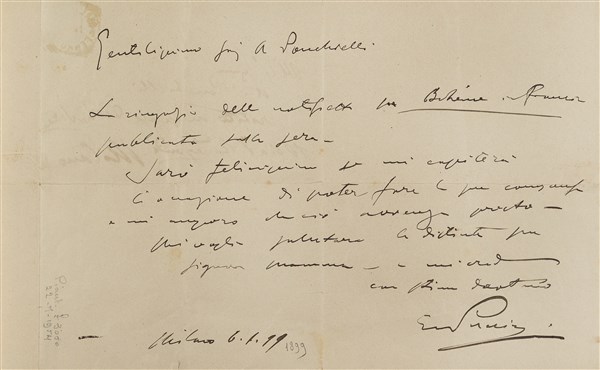 Gentilissimo Sig A Ponchielli
La ringrazio delle notifiche per Bohème in Francia
pubblicata sulla sera –
Sarò felicissimo se mi capiterà
l'occasione di poter fare la sua conoscenza
e mi auguro che ciò avvenga presto –
Mi voglia salutare la distinta sua
signora mamma – e mi creda
con stima devotmo
Puccini.
– Milano 6.1.99
1899